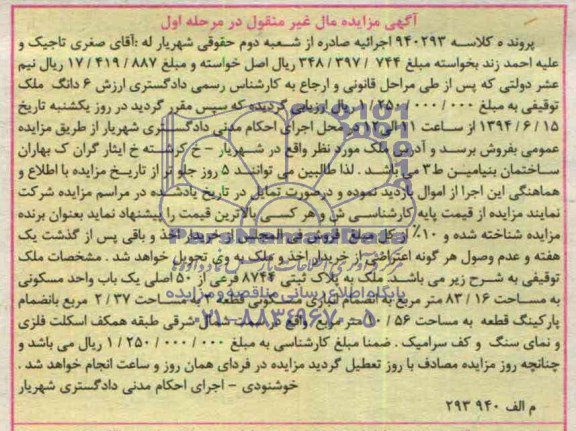 آگهی مزایده مال غیر منقول در مرحله اول
پرونده کلاسه ۹۴۰۲۹۳ اجرائیه صادره از شعبه دوم حقوقی شهریار له : آقای صغری تاجیک و
علیه احمد زند بخواسته مبلغ ۷۴۴ / ۳۹۷ / ۳۴۸ ریال اصل خواسته و مبلغ ۸۸۷ / ۴۱۹ / ۱۷ ریال نیم
عشر دولتی که پس از طی مراحل قانونی و ارجاع به کارشناس رسمی دادگستری ارزش ۶ دانگ ملک
توقیفی به مبلغ ۰۰۰ / ۰۰۰ / ۲۵۰ / ۱ ریال ارزیابی گردیده که سپس مقرر گردید در روز یکشنبه تاریخ
۱۵ / ۶ / ۱۳۹۴ از ساعت ۱۱ الی ۱۲ در محل اجرای احکام مدنی دادگستری شهریار از طریق مزایده
عمومی بفروش برسد و آدرس ملک مورد نظر واقع در شهریار - خ کرشته خ ایثار گران ک بهاران
ساختمان بنیامین ط ۳ می باشد . لذا طالبین می توانند ۵ روز جلو تر از تاریخ مزایده با اطلاع و
هماهنگی این اجرا از اموال بازدید نموده و درصورت تمایل در تاریخ یادشده در مراسم مزایده شرکت
نمایند مزایده از قیمت پایه کارشناسی ش و هر کسی بالاترین قیمت را پیشنهاد نماید بعنوان برنده
مزایده شناخته شده و ۱۰٪ از کل مبلغ فروش فی المجلس از خریدار اخذ و باقی پس از گذشت یک
هفته و عدم وصول هر گونه اعتراضی از خریدار اخذ و ملک به وی تحویل خواهد شد . مشخصات ملک
توقیفی به شرح زیر می باشد: ملک به پلاک ثبتی ۸۷۴۴ فرعی از ۵۰ اصلی یک باب واحد مسکونی
به مساحت ۱۶ / ۸۳ متر مربع به انضمام انباری مسکونی قطعه به مساحت ۳۷ / ۲ مربع بانضمام
پارکینگ قطعه به مساحت ۵۶ / ۱۰ متر مربع واقع در سمت شمال شرقی طبقه همکف اسکلت فلزی
و نمای سنگ و کف سرامیک . ضمنا مبلغ کارشناسی به مبلغ ۰۰۰ / ۰۰۰ / ۲۵۰ / ۱ ریال می باشد و
چنانچه روز مزایده مصادف با روز تعطیل گردید مزایده در فردای همان روز و ساعت انجام خواهد شد .
خوشنودی - اجرای احکام مدنی دادگستری شهریار
م الف ۹۴۰ ۲۹۳
ParsNamadData
پایگاه اطلاع رسانی مناقصه و مزایده
۰۲۱-۸۸۳۴۹۶۷۰-۵